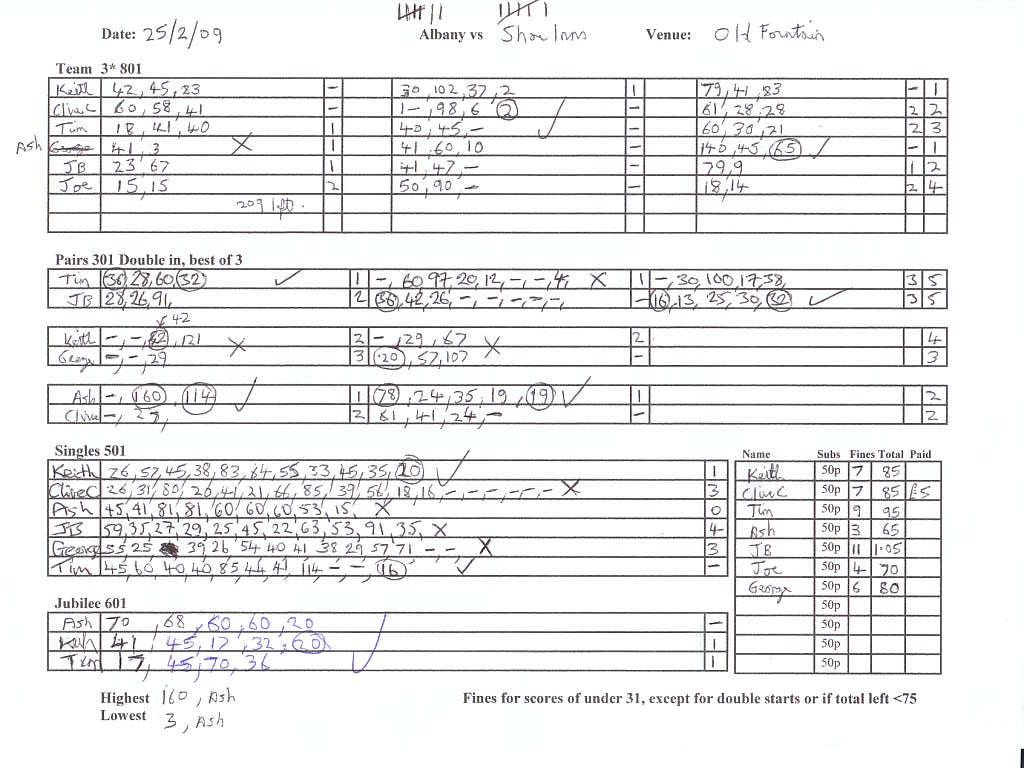 Date: 25/2/09 Albany vs Shoe Inns Venue: Old Fountain
Team 3* 801
Keith 42, 45, 83 - 30, 102, 37, 2 1 79, 41, 83 - 1
Clive C 60, 58, 41 - 1-, 98, 6 2 - 61, 28, 28 2 2
Tim 18, 41, 40 1 40, 45, - - 60, 30, 21 2 3
Ash 41, 3 1 41, 60, 10 - 140, 45, 65 - 1
JB 23, 67 1 41, 47, - - 79, 9 1 2
Joe 15, 15 2 50, 90, - - 18, 14 2 4
209 left.
Pairs 301 Double in, best of 3
Tim 36, 28, 60, 32 1 -, 60 97, 20, 12, -, -, 4, 1 -, 30, 100, 17, 38, 3 5
JB 28, 26, 91, 2 36, 42, 26, -, -, -, -, -, - 16, 13, 25, 30, 32 3 5
42
Keith -, -, 121 2 -, 29, 67 2 4
George -, -, 29 3 20, 57, 107 - 3
Ash -, 160, 114 1 78, 24, 35, 19, 19 1 2
Clive -, 2 61, 41, 24, - - 2
Singles 501
Keith 26, 57, 45, 38, 83, 64, 55, 33, 45, 35, 20 1
Clive C 26, 31, 80, 20, 41, 21, 66, 85, 39, 56, 18, 16, -, -, -, -, -, - 3
Ash 45, 41, 81, 81, 60, 60, 60, 53, 15, 0
JB 59, 35, 27, 29, 25, 45, 22, 63, 53, 91, 35, 4
George 55, 25 39 26 54 40 41 38 29 57 71 - - 3
Tim 45, 60, 40, 40, 85, 44, 41, 114 -, -, 16 -
Name Subs Fines Total Paid
Keith 50p 7 85
Clive C 50p 7 85 £5
Tim 50p 9 95
Ash 50p 3 65
JB 50p 11 1.05
Joe 50p 4 70
George 50p 6 80
50p
50p
50p
50p
Jubilee 601
Ash 70, 68, 60, 60, 20 -
Keith 41, 45, 17, 32, 20 1
Tim 17, 45, 70, 36 1
Highest 160, Ash
Lowest 3, Ash
Fines for scores of under 31, except for double starts or if total left <75